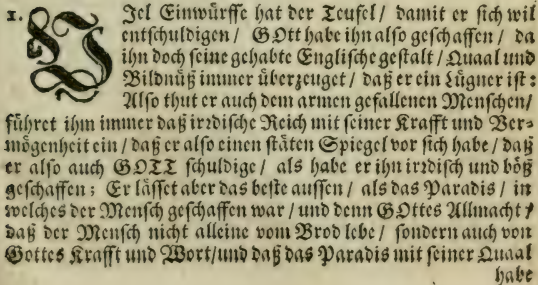 1. VIel Einwürffe hat der Teufel / damit er sich wil
entschuldigen / GOtt habe ihn also geschaffen / da
ihn doch seine gehabte Englische gestalt / Quaal und
Bildnüß immer überzeuget / daß er ein Lügner ist:
Also thut er auch dem armen gefallenen Menschen /
führet ihm immer daß irrdische Reich mit seiner Krafft und Ver=
mögenheit ein / daß er also einen stäten Spiegel vor sich habe / daß
er also auch GOTT schuldige / als habe er ihn irrdisch und böß
geschaffen; Er lässet aber das beste aussen / als das Paradis / in
welches der Mensch geschaffen war / und denn GOttes Allmacht /
daß der Mensch nicht alleine vom Brod lebe / sondern auch von
Gottes Krafft und Wort / und daß das Paradis mit seiner Quaal
habe